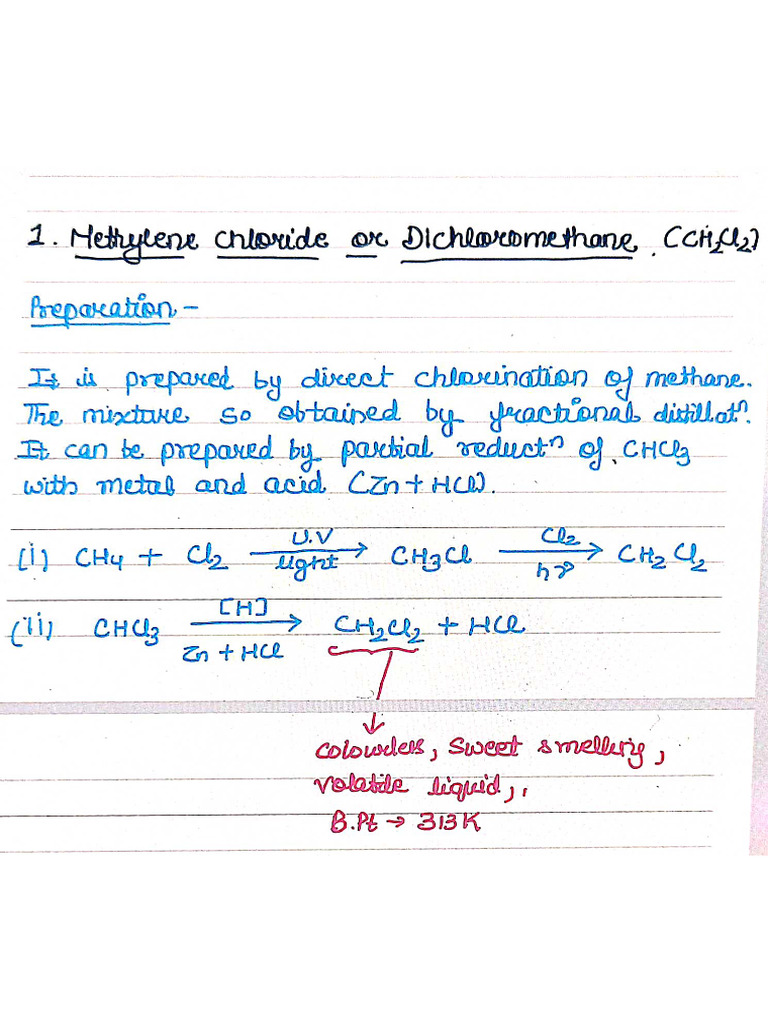 1. Methylene Chloride or Dichloromethane. (CH₂Cl₂)
Preparation –
It is prepared by direct chlorination of methane.
The mixture so obtained by fractional distillatⁿ.
It can be prepared by partial reductⁿ of CHCl₃
with metal and acid (Zn + HCl).
(i) CH₄ + Cl₂ —U.V light→ CH₃Cl —Cl₂ hν→ CH₂Cl₂
(ii) CHCl₃ —[H] Zn + HCl→ CH₂Cl₂ + HCl
↓
Colourless, Sweet smelling,
Volatile liquid,,
B.Pt → 313K